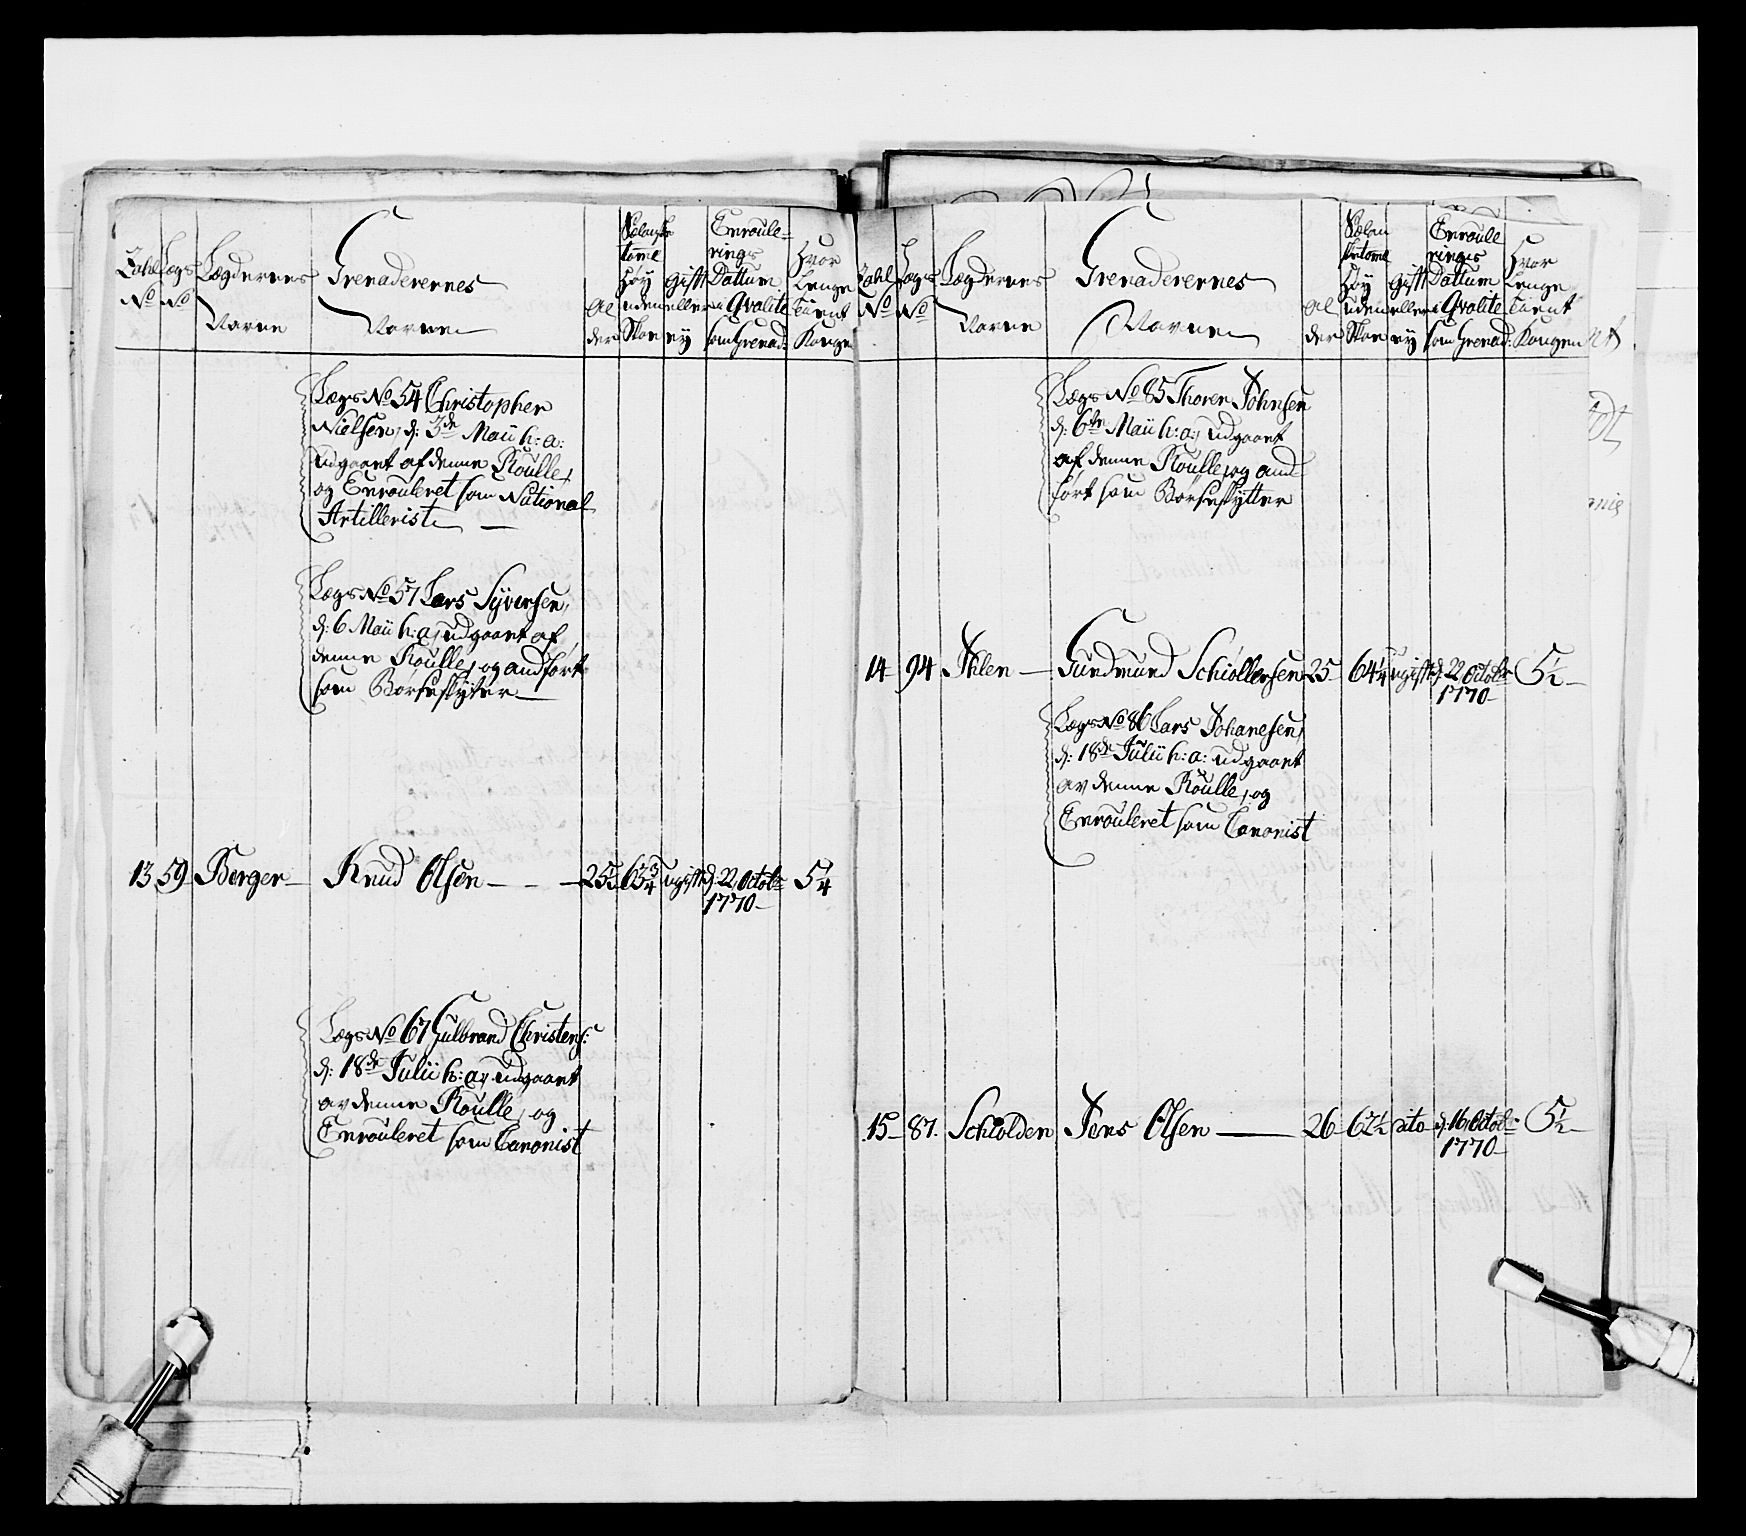 Zahl No
Legs No
Lægdernes Navne
Grenaderernes Navne
Alder
Siælansketomme Høy uden Skoe
Gift eller ey
Enroulerings Dattum i Qvalite som Grenad:
Hvor Lenge Tient Kongen
Lægs No 54 Christopher
Nielsen, d: 3de Maii h: a:
udgaaet af denne Roulle,
og Enrouleret som National
Artillerist
Lægs No 57 Lars Syversen,
d: 6 Maii h: a, udgaaet af
denne Roulle, og andført
som Børseskytter
13 59 Berger Knud Olsen 25 65 3/4 ugift d 22 Octobr 5 1/4
1770
Lægs No 67 Gulbrand Christens:
d: 18de Julii h: a, udgaaet
av denne Roulle, og
Enrouleret som Canonist
Zahl No
Lægs No
Lægdernes Navne
Grenaderernes Navne
Alder
Siælansketomme Høy uden Skoe
Gift eller ey
Enroullerings Dattum i Qvalite som Grenad:
Hvor Lenge Tient Kongen
Lægs No 85 Thoren Johnsen
d: 6te Maii h: a, udgaaet
af denne Roulle, og and
ført som Børseskytter
14 94 Ihlen Gundmund Schiöllersen 25 64 1/4 ugift d 22 Octobr 5 1/2
1770
Lægs No 86 Lars Johanesen,
d: 18de Julii h: a: udgaaet
av denne Roulle, og
Enrouleret som Canonist
15 87. Schiolden Jens Olsen 26 62 1/2 dito d: 16 Octobr 5 1/2
1770